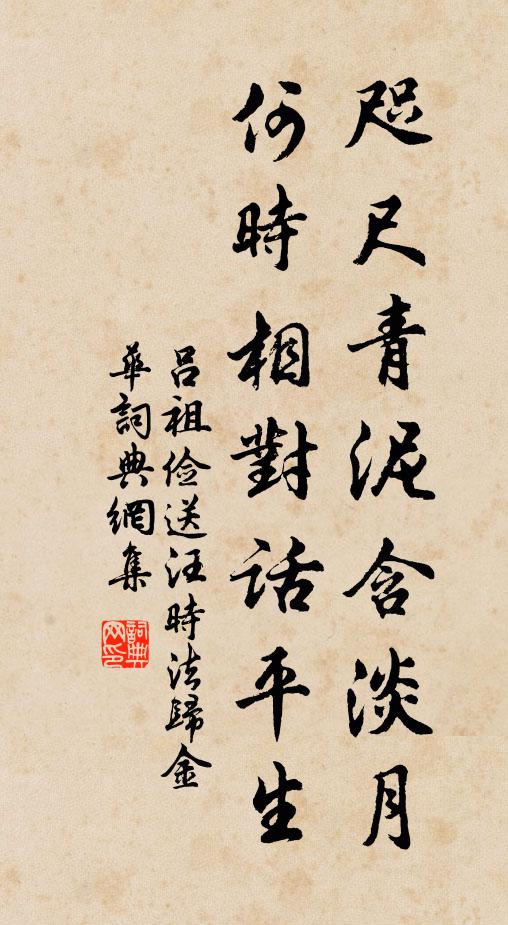 咫尺青泥含淡月
何時相對話平生
呂祖儉送汪時法歸金
華詞典網集
詞典
网印